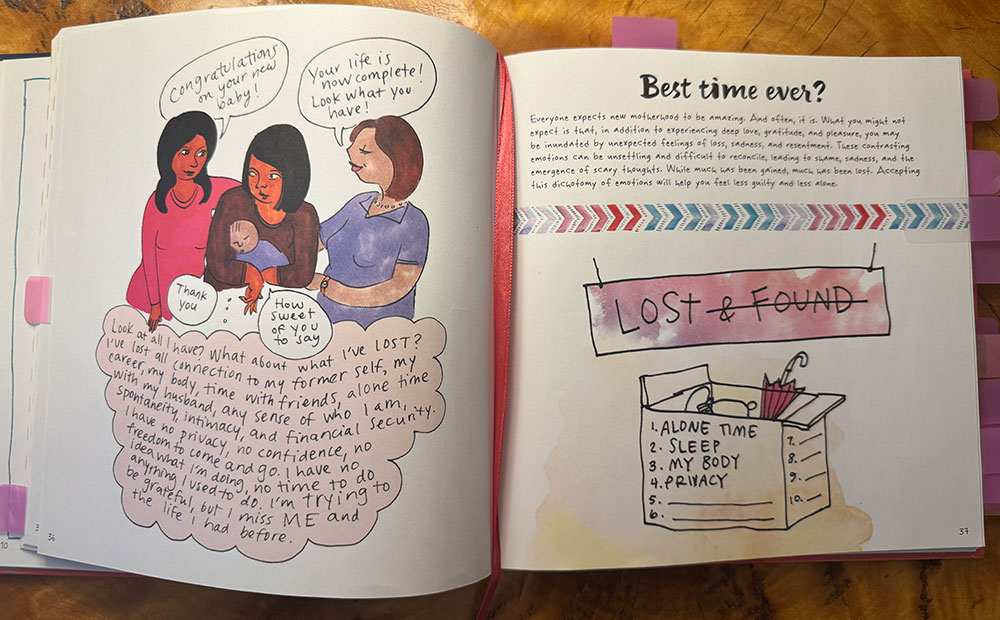 Congratulations
on your new
baby!
Your life is
now complete!
Look what you
have!
Thank
you
How
sweet
of you
to say
Look at all I have? What about what I've LOST?
I've lost all connection to my former self, my
career, my body, time with friends, alone time
with my husband, any sense of who I am,
spontaneity, intimacy, and financial security.
I have no privacy, no confidence, no
freedom to come and go. I have no
idea what I'm doing, no time to do
anything I used to do. I'm trying to
be grateful, but I miss ME and
the life I had before.
10
36
Best time ever?
Everyone expects new motherhood to be amazing. And often, it is. What you might not
expect is that, in addition to experiencing deep love, gratitude, and pleasure, you may
be inundated by unexpected feelings of loss, sadness, and resentment. These contrasting
emotions can be unsettling and difficult to reconcile, leading to shame, sadness, and the
emergence of scary thoughts. While much has been gained, much has been lost. Accepting
this dichotomy of emotions will help you feel less guilty and less alone.
LOST & FOUND
1. ALONE TIME
2. SLEEP
3. MY BODY
4. PRIVACY
5.
6.
7.
8.
9.
10.
37